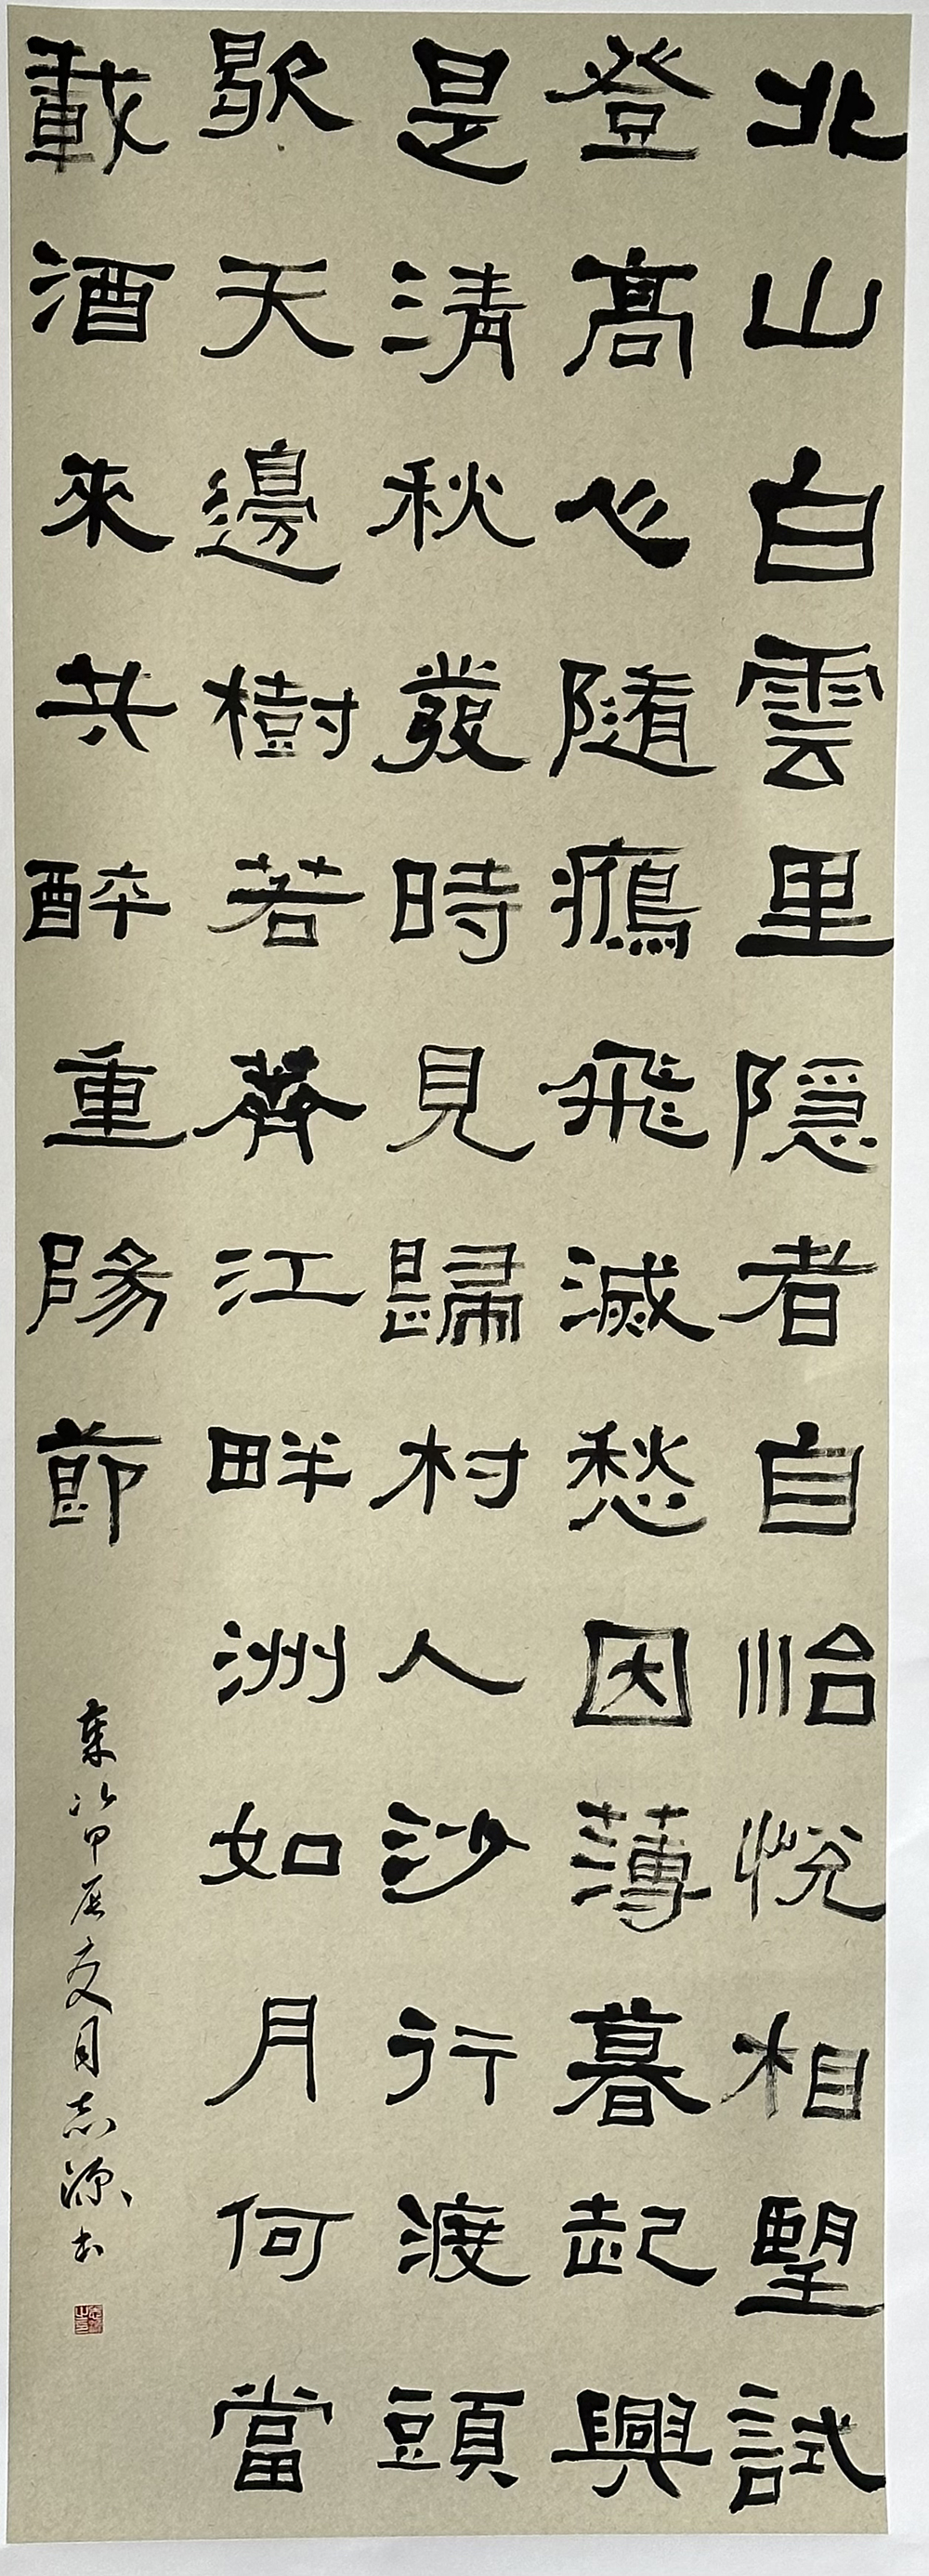 北山白雲里隱者自怡悅相望試
登高心隨鴈飛滅愁因薄暮起興
是清秋發時見歸村人沙行渡頭
歇天邊樹若齊江畔洲如月何當
載酒來共醉重陽節
歲次甲辰夏月志源書